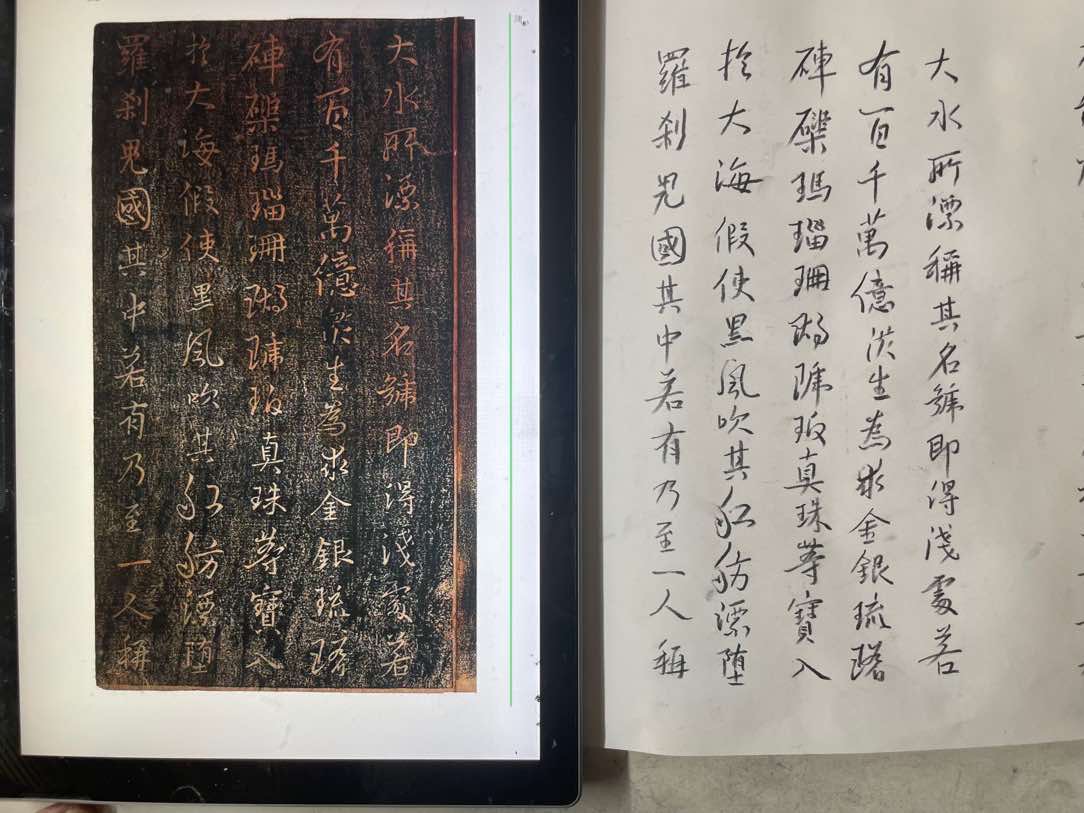 大水所漂稱其名號即得淺處若
有百千萬億眾生為求金銀琉璃
硨磲瑪瑙珊瑚琥珀真珠等寶入
於大海假使黑風吹其船舫漂墮
羅剎鬼國其中若有乃至一人稱
大水所漂稱其名號即得淺處若
有百千萬億眾生為求金銀琉璃
硨磲瑪瑙珊瑚琥珀真珠等寶入
於大海假使黑風吹其船舫漂墮
羅剎鬼國其中若有乃至一人稱